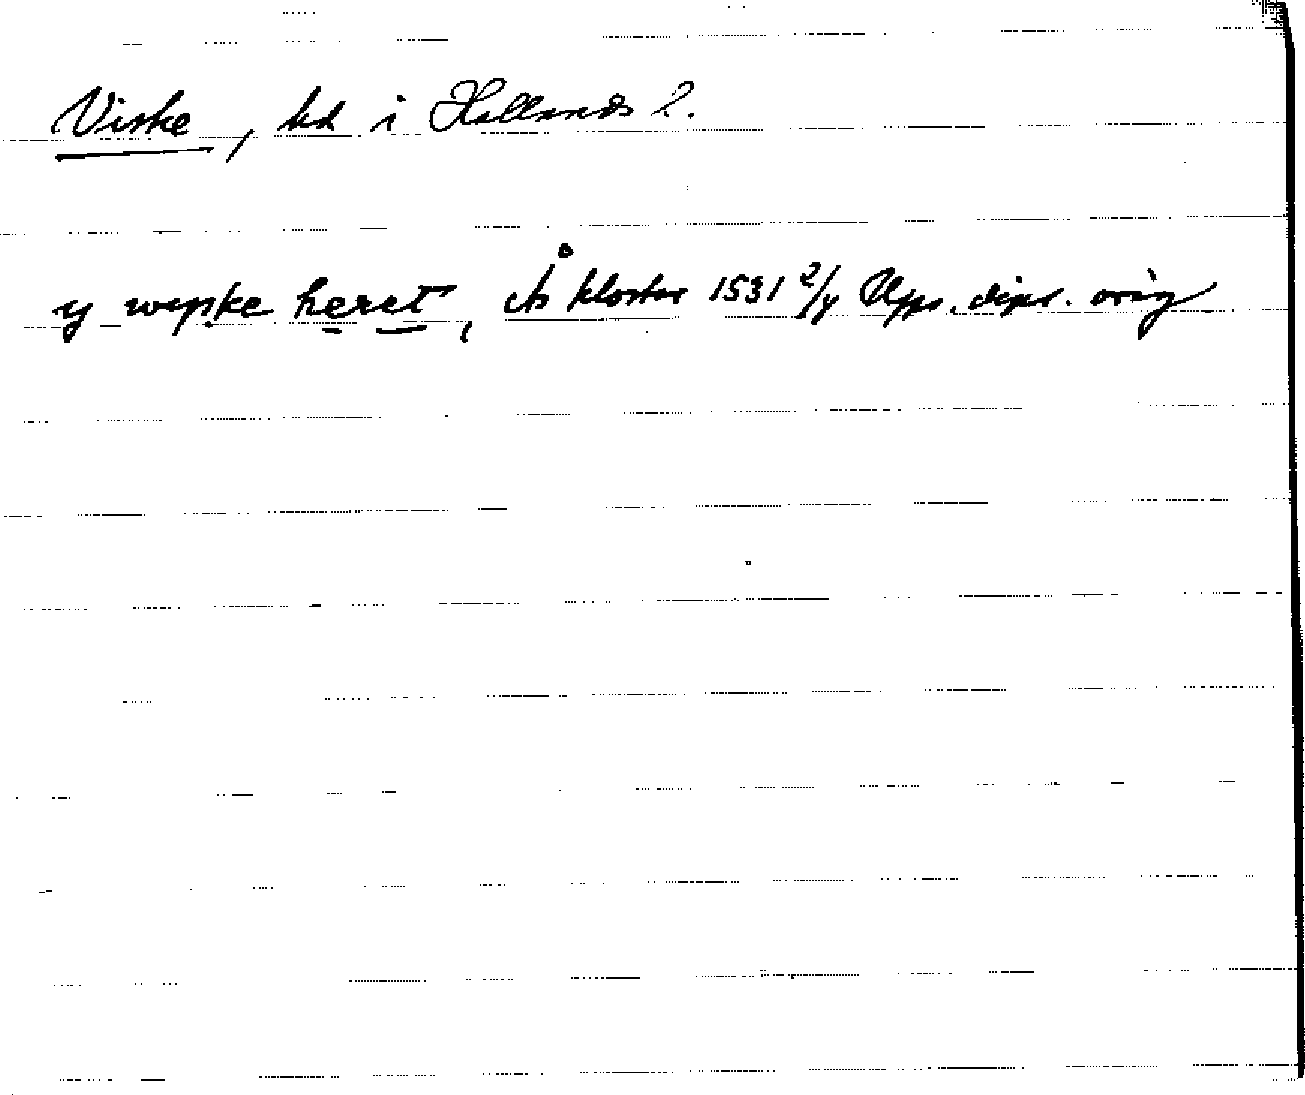 Viske, hd i Hallands l.
y wepske heret, Ås kloster 1531 2/4 Upps. dipl. orig